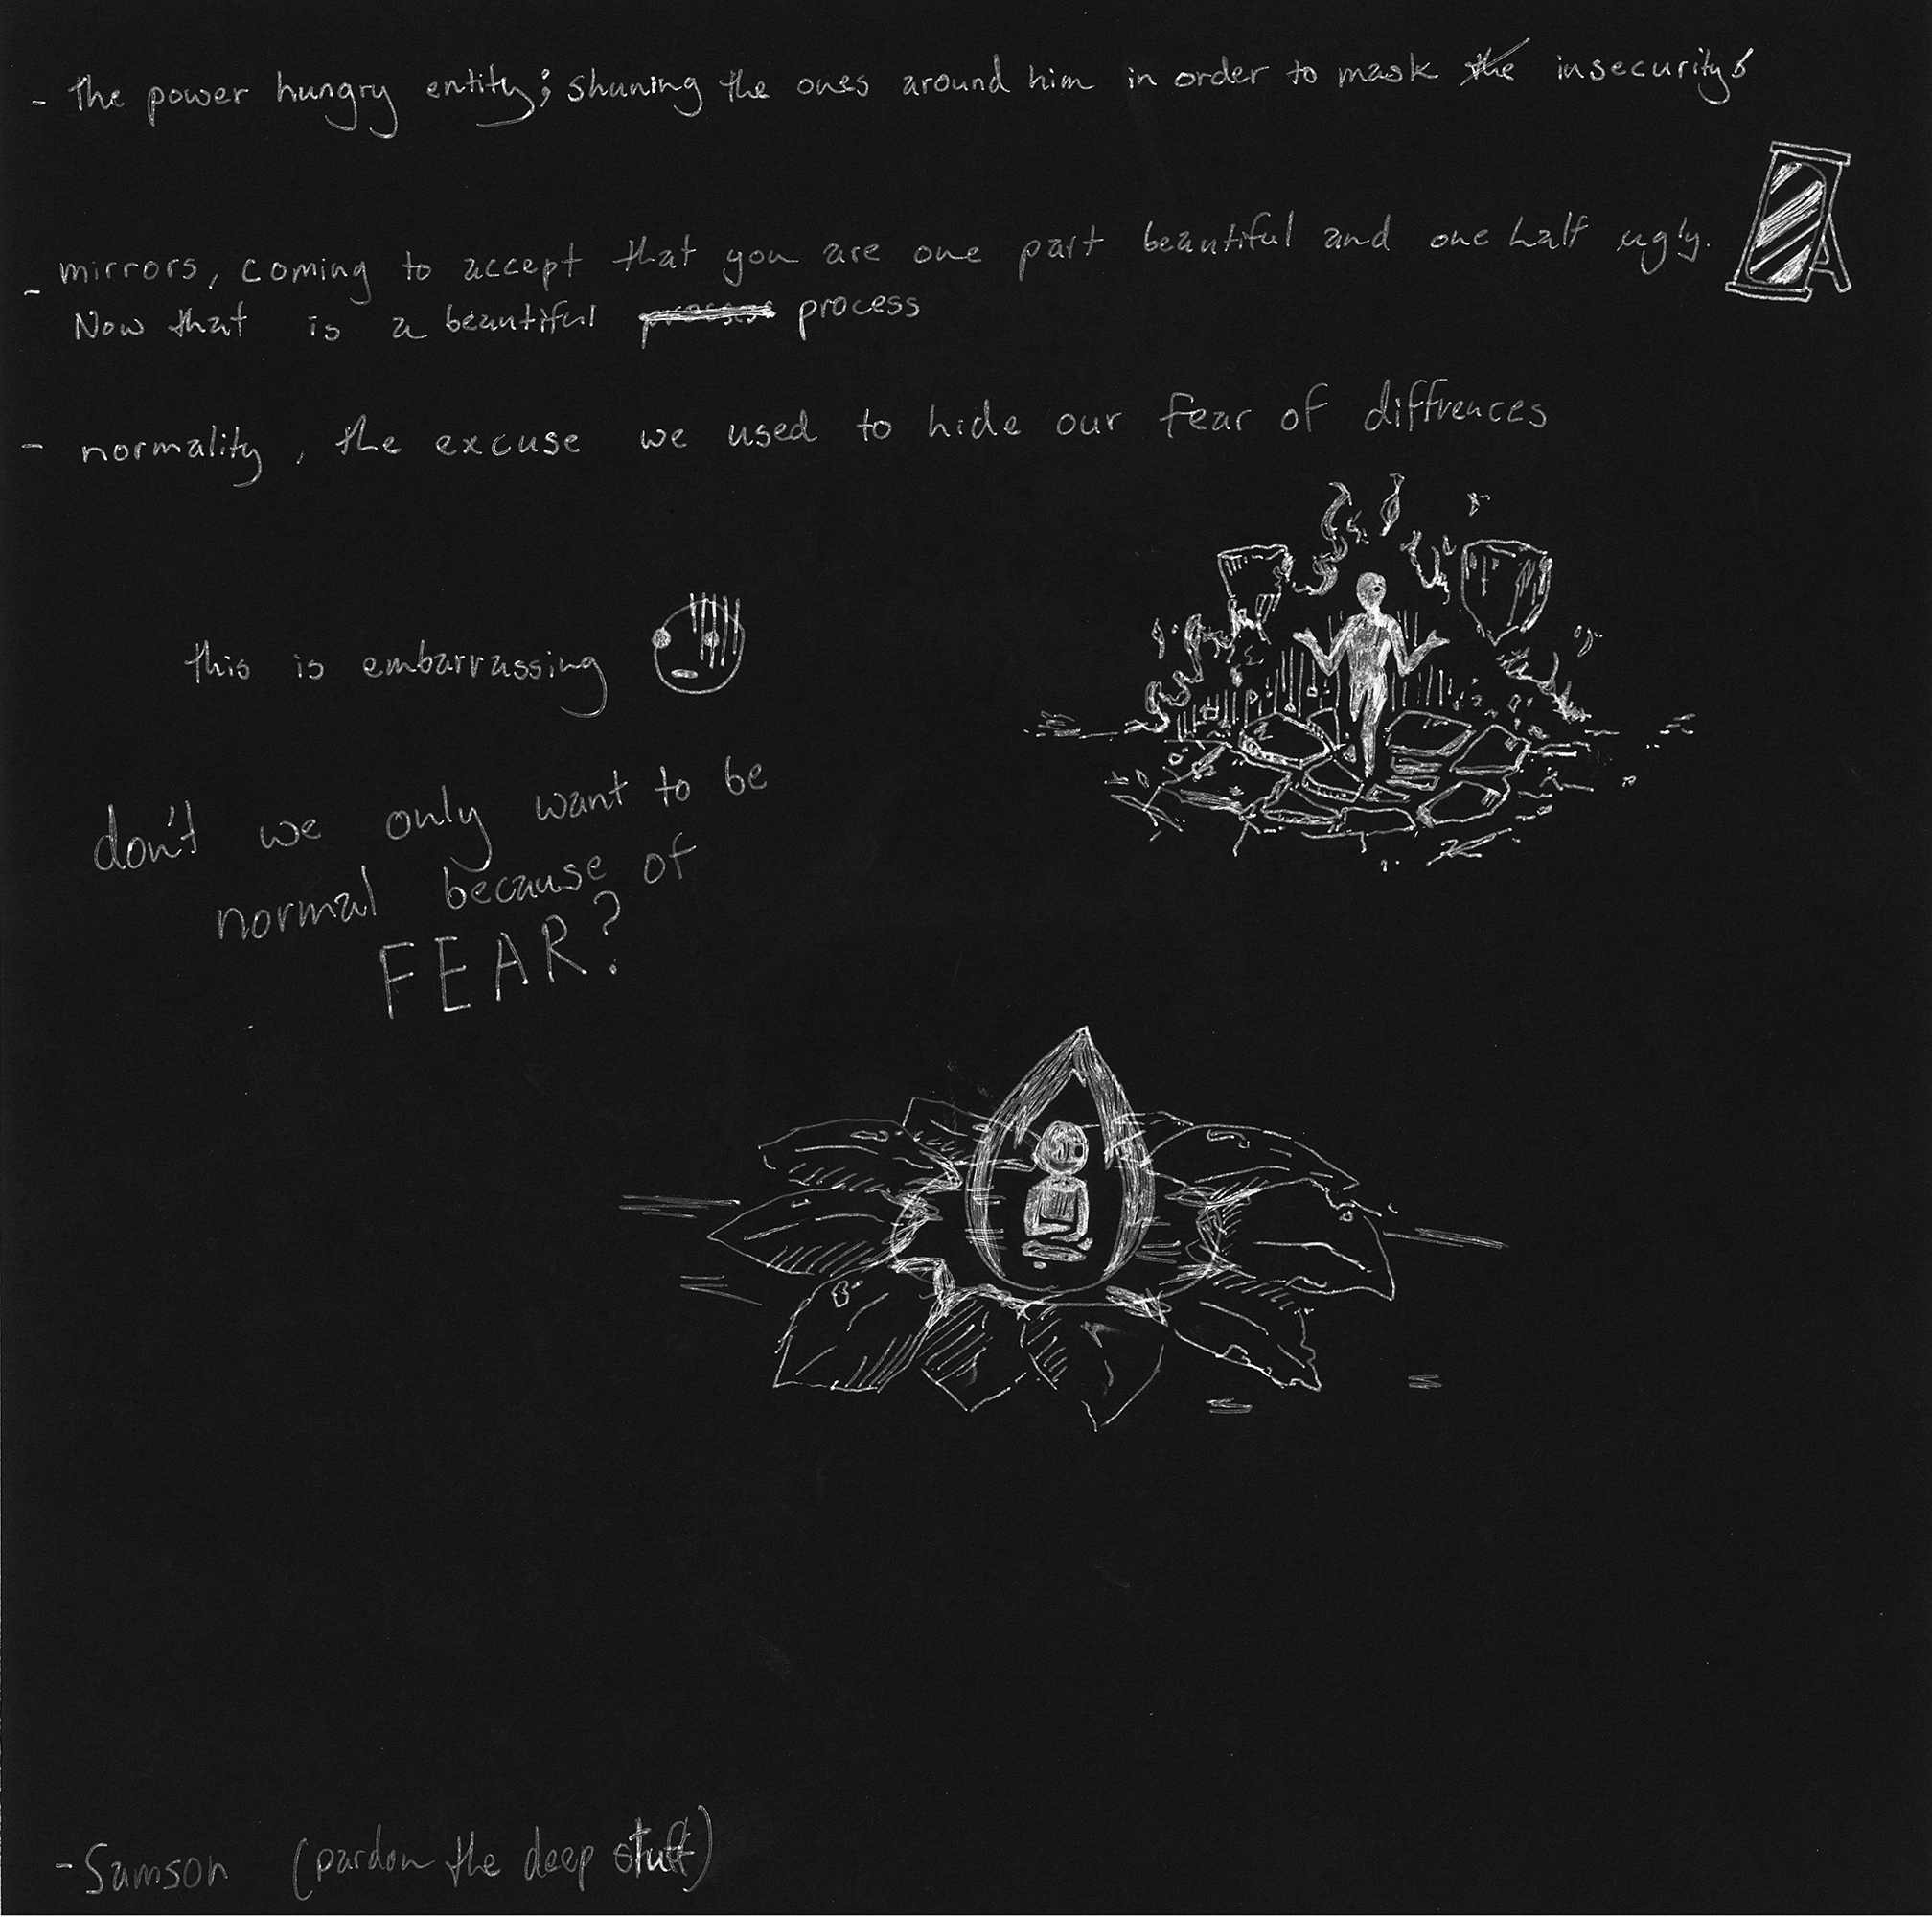 - the power hungry entity; shuning the ones around him in order to mask the insecurity
- mirrors, coming to accept that you are one part beautiful and one half ugly.
Now that is a beautiful process process
- normality, the excuse we used to hide our fear of diffrences
this is embarrassing
don't we only want to be
normal because of
FEAR?
- Samson (pardon the deep stuff)